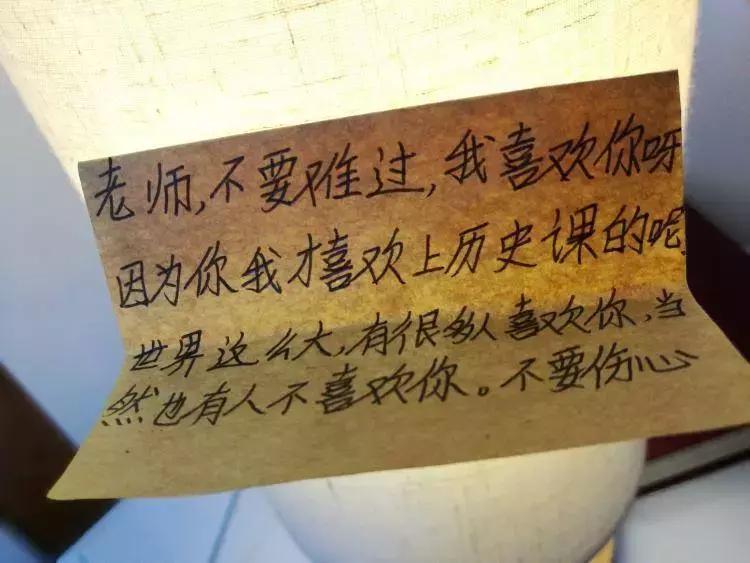 老师,不要难过,我喜欢你呀
因为你我才喜欢上历史课的呢
世界这么大,有很多人喜欢你,当
然也有人不喜欢你。不要伤心